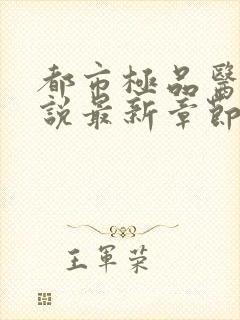 都市極品醫
說最新章節
王軍榮